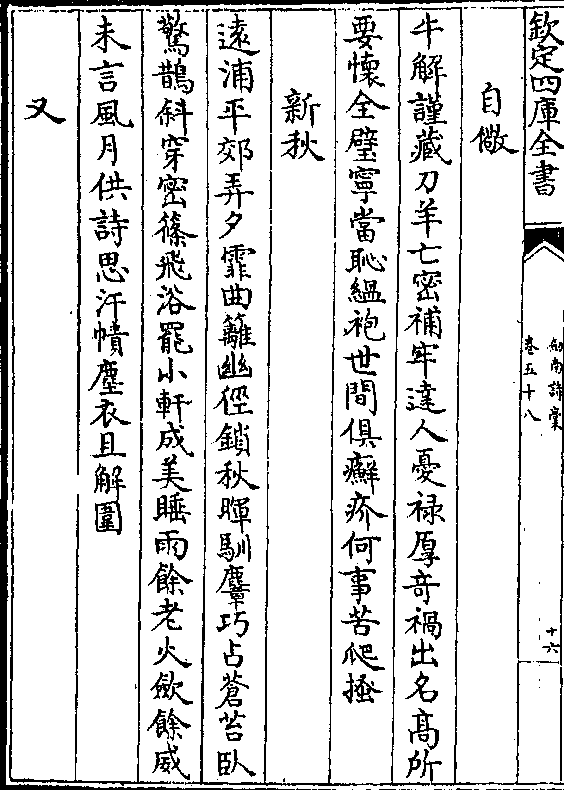 欽定四庫全書
劍南詩稾
卷五十八
十六
自儆
牛解謹藏刀羊亡密補牢達人憂禄厚竒禍出名髙所
要懷全璧寧當恥緼袍世間俱癬疥何事苦爬搔
新秋
逺浦平郊弄夕霏曲籬幽徑鎖秋暉馴麞巧占蒼苔臥
驚鵲斜穿密篠飛浴罷小軒成美睡雨餘老火斂餘威
未言風月供詩思汗幘塵衣且解圍
又